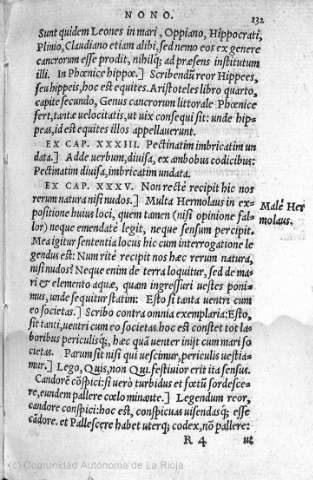 NONO. 132
Sunt quidem Leones in mari, Oppiano, Hippocrati,
Plinio, Claudiano etiam alibi, sed nemo eos ex genere
cancrorum esse prodit, nihilq; ad præsens institutum
illi. In Phœnice hippœ.] Scribendũ reor Hippees,
seu hippeis, hoc est equites. Aristoteles libro quarto,
capite secundo, Genus cancrorum littorale Phœnice
fert, tantæ velocitatis, ut uix consequi sit: unde hip-
peas, id est equites illos appellauerunt.
EX CAP. XXXIII. Pectinatim imbricatim un
data.] Adde uerbum, diuisa, ex ambobus codicibus:
Pectinatim diuisa, imbricatim undata.
EX CAP. XXXV. Non rectè recipit hic nos
rerum natura nisi nudos.] Multa Hermolaus in ex-
positione huius loci, quem tamen (nisi opinione fal-
lor) neque emendatè legit, neque sensum percipit.
Mea igitur sententia locus hic cum interrogatione le
gendus est: Num ritè recipit nos hæc rerum natura,
nisi nudos? Neque enim de terra loquitur, sed de ma-
ri & elemento aquæ, quam ingressuri uestes poni-
mus, unde sequitur statim: Esto si tanta uentri cum
eo societas.] Scribo contra omnia exemplaria: Esto,
sit tanti, uentri cum eo societas. hoc est, constet tot la-
boribus periculisq;, hæc quã uenter inijt cum mari so
cietas. Parum sit nisi qui uescimur, periculis uestia-
mur.] Lego, Quis, non Qui. festiuior erit ita sensus.
Candorẽ cõspici: si uerò turbidus et fœtũ sordesce-
re, eundem pallere cœlo minante.] Legendum reor,
candore conspici: hoc est, conspicuas uisendasq; esse
cãdore. et Pallescere habet uterq; codex, nõ pallere:
R 4 ut
Malè Her
molaus.
(c) Comunidad Autonoma de La Rioja